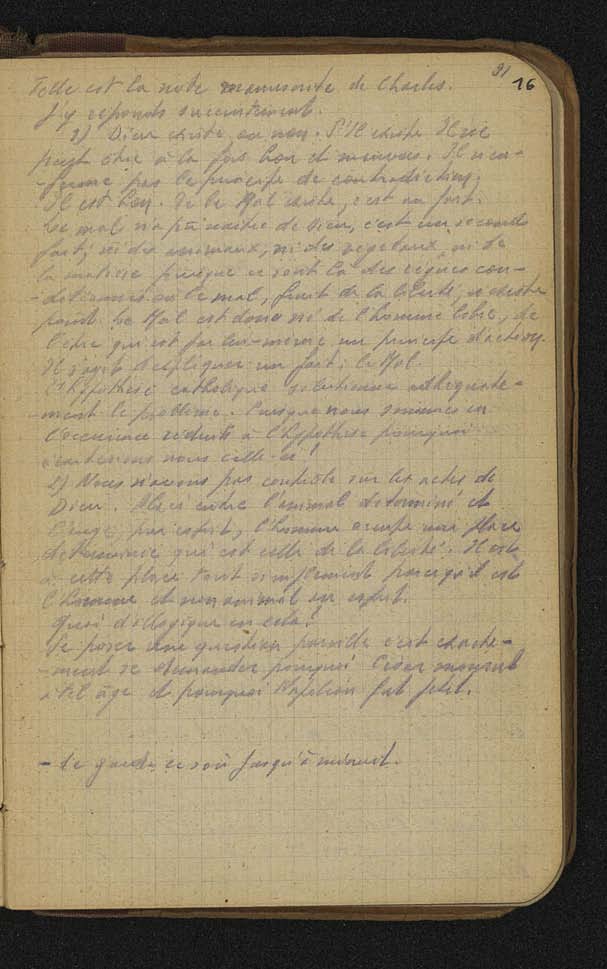 91
16
Telle est la note manuscrite de Charles.
J'y réponds succintement.
1) Dieu existe ou non. S'Il existe Il ne
peut être à la fois bon et mauvais. Il n'en-
-freine pas le principe de contradiction.
Il est bon. Si le Mal existe, c'est un fait.
Le mal n'a pu naître de Dieu, c'est un second
fait; ni des animaux, ni des végétaux, ni de
la matière puisque ce sont là des règnes con-
-ditionnés où le mal, fruit de la liberté, n'existe
point. Le Mal est donc né de l'homme libre, de
l'être qui est par lui-même un principe d'action.
Il s'agit d'expliquer un fait: le Mal.
L'hypothèse catholique solutionne adéquate-
-ment le problème. Puisque nous sommes en
l'occurence réduits à l'hypothèse pourquoi
nous celle-ci?
2) Nous n'avons pas contrôle sur les actes de
Dieu. Placé entre l'animal déterminé et
l'ange, pur esprit, l'homme occupe une place
déterminée qui est celle de la liberté. Il est
à cette place tout simplement parce qu'il est
l'homme et non animal ou esprit.
Quoi d'illogique en cela?
Se poser une question pareille c'est exacte-
-ment se demander pourquoi César mourut
à tel âge et pourquoi Napoléon fut petit.
- De garde ce soir jusqu'à minuit.